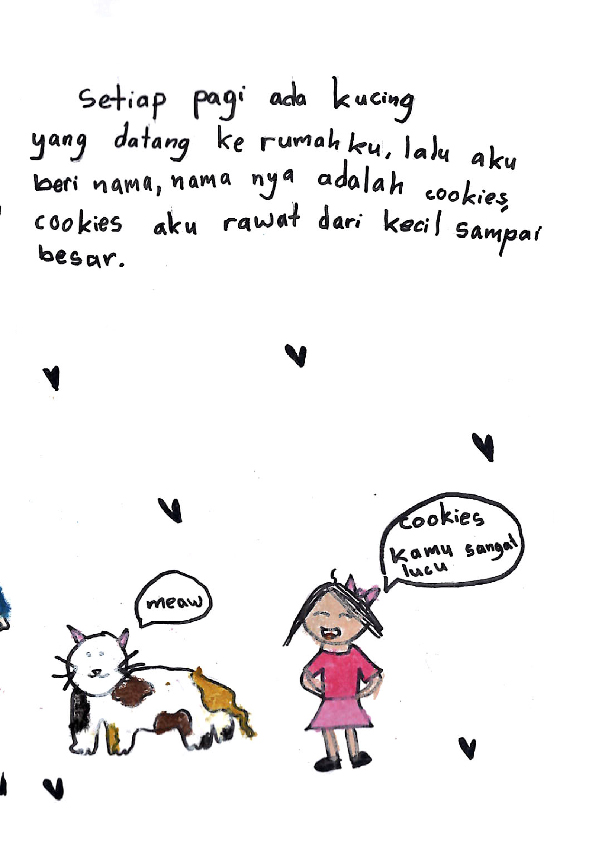 Setiap pagi ada kucing
yang datang ke rumahku, lalu aku
beri nama, nama nya adalah cookies,
cookies aku rawat dari kecil sampai
besar.
cookies
kamu sangat
lucu
meaw